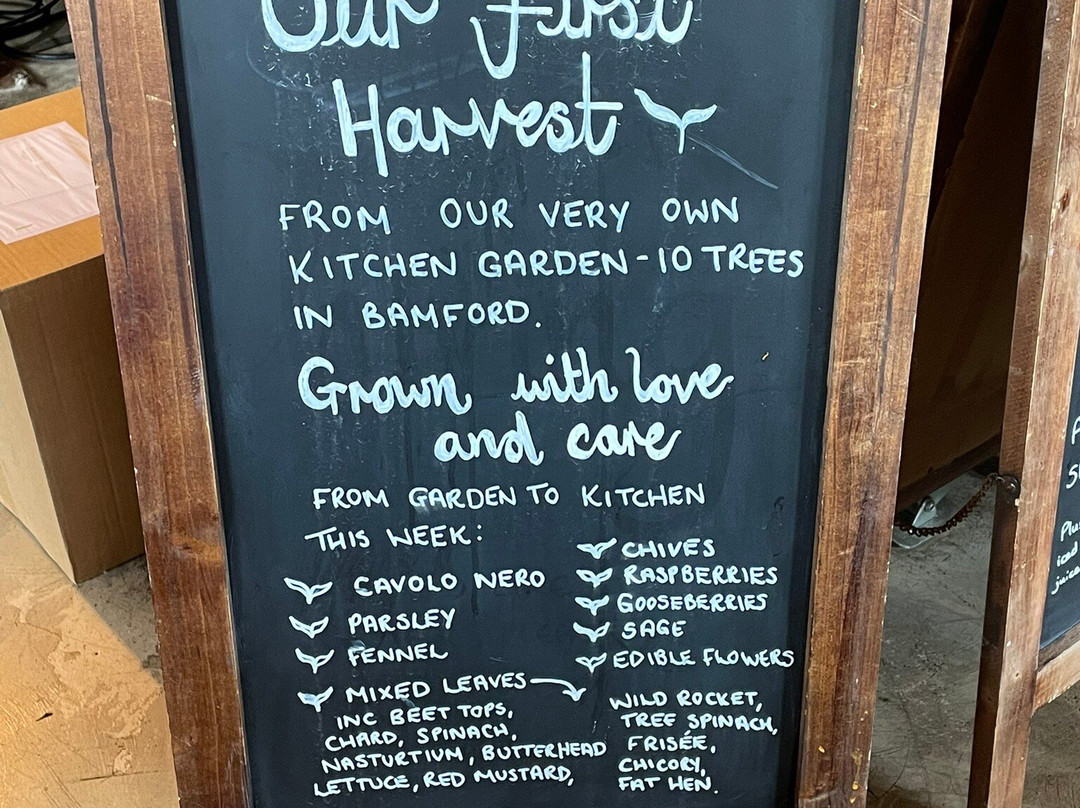 Our first
Harvest
FROM OUR VERY OWN
KITCHEN GARDEN - 10 TREES
IN BAMFORD.
Grown with love
and care
FROM GARDEN TO KITCHEN
THIS WEEK:
CAVOLO NERO
PARSLEY
FENNEL
MIXED LEAVES
INC BEET TOPS,
CHARD, SPINACH,
NASTURTIUM, BUTTERHEAD
LETTUCE, RED MUSTARD,
CHIVES
RASPBERRIES
GOOSEBERRIES
SAGE
EDIBLE FLOWERS
WILD ROCKET,
TREE SPINACH,
FRISÉE,
CHICORY,
FAT HEN.